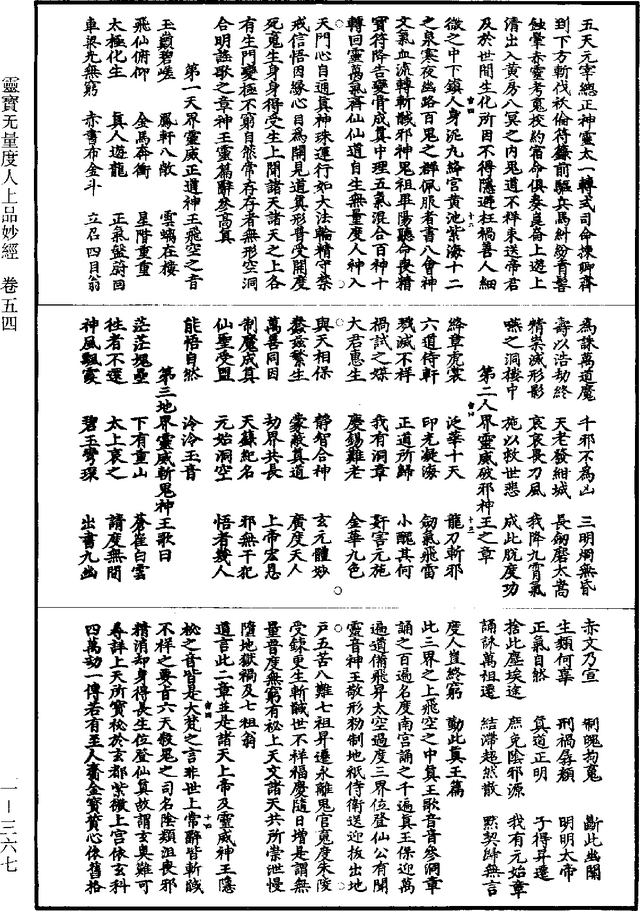 五天元宰總正神靈太一轉式司命陳卿齊
到下方斬伐祆偷符籙前驅兵馬糾紛青霫
蝕暈赤靈考鬼校約宿命俱奏良咎上遊上
清出入黃房八冥之內鬼道不祥束送帝君
及於世間生化所因不得隱避枉禍善人細
微之中下鎮人身泥丸絳宮黃池紫海十二
之泉寒夜幽路百鬼之群佩服者書八會神
文氣血流轉斬馘邪神鬼祖畢陽聽命喪精
寶符降告變骨成真中理五氣混合百神十
轉回靈萬氣齊仙仙道自生無量度人神入
天門心自通真神珠運行如大法輪精守禁
戒信悟因緣心目為開見道真形普受開度
死鬼生身身得受生上聞諸天諸天之上各
有生門變極不窮自然常存存者無形空洞
合明謠歌之章神王靈篇辭參高真
第一天界靈威正道神王飛空之音
玉巔碧嵯 鳳軒八散 雲螭在樓
飛仙俯仰 金馬奔衝 星階重重
太極化生 真人遊龍 正氣盤蔚回
車梁光無窮 赤書布金斗 立召四目翁
為誅萬道魔 千邪不為凶 三明燭無昏
壽以浩劫終 天老發紺城 長劒磨太嵩
精祟滅形影 哀哀畏刀風 我降九霄氣
嘯之洞樓中 施以救世悲 成此脫度功
第二人界靈威破邪神王之章
絳章虎裳 泛華十天 龍刀斬邪
六道侍軒 印光凝海 劒氣飛雷
殲滅不祥 正道所歸 小醜其何
禍試之媒 我有洞章 姧害元施
大君惠生 慶錫難老 金華九色
與天相保 靜智合神 玄元體妙
蠢茲繁生 蒙蔽真道 廣度天人
萬善同因 劫界共長 上帝宏恩
制魔成真 天籙紀名 邪無干犯
仙聖受盟 元始洞空 悟者幾人
能悟自然 泠泠玉音
第三地界靈威斬鬼神王歌曰
茫茫塊壘 下有重山 蒼崔白雲
往者不還 太上哀之 請度無間
神風飄霞 碧玉彎琛 出書九幽
赤文乃宣 制魄拘鬼 斷此幽關
生類何辜 刑禍孱顏 明明太帝
正氣自然 真道正明 子得昇遷
捨此塵埃途 庶免陰邪源 我有元始章
誦詠萬祖遷 結滯超然散 默契歸無言
度人豈終窮 勤此真王篇
此三界之上飛空之中真王歌音音參洞章
誦之百遍名度南宮誦之千遍真王保迎萬
遍道備飛昇太空過度三界位登仙公有聞
靈音神王敬形粉制地祇侍衛送迎拔出地
戶五苦八難七祖昇遷永離鬼官寬度朱陵
受鍊更生斬馘世不祥福慶隨日增是謂無
量普度無窮有祕上天文諸天共所崇泄慢
墮地獄禍及七祖翁
道言此二章並是諸天上帝及靈威神王隱
祕之音皆是大梵之言非世上常辭皆斬馘
不祥之要音六天殺鬼之司名陰類沮喪邪
精消却身得長生位登仙真故謂玄奧難可
尋詳上天所寶秘於玄都紫微上宮依玄科
四萬劫一傳若有至人齎金寶質心依舊格
靈寶无量度人上品妙經 卷五四
一—三六七